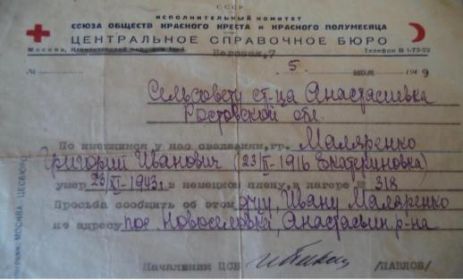 СССР
ИСПОЛНИТЕЛЬНЫЙ КОМИТЕТ
СОЮЗА ОБЩЕСТВ КРАСНОГО КРЕСТА и КРАСНОГО ПОЛУМЕСЯЦА
ЦЕНТРАЛЬНОЕ СПРАВОЧНОЕ БЮРО
Москва, Телефон
№ 5 1949
Сельсовету ст-ца Анастасиевка
Ростовской обл.
По имеющимся у нас сведениям, гр. Маляренко
Григорий Иванович (23/ 1916 Екатериновка)
умер 23/XI-1943г в немецком плену, в лагере № 318
Просьба сообщить об этом отцу, Ивану Маляренко
по адресу пос. Новоселовка, Анастасьин р-на
Начальник ЦСБ /ПАВЛОВ/
МОСКВА. ЦЕСБЮРО